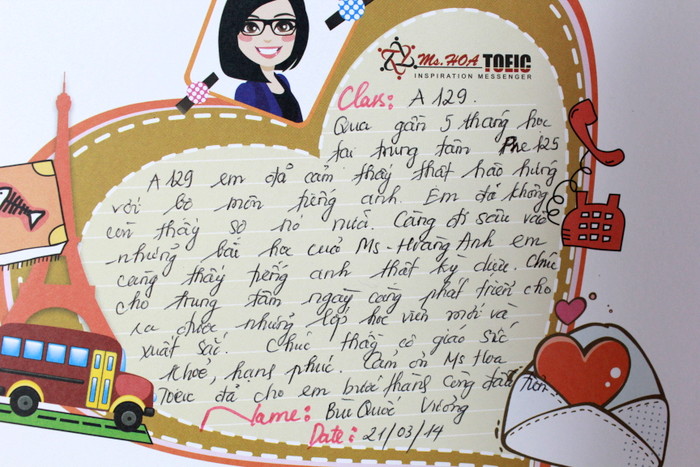 Ms. HOA TOEIC
INSPIRATION MESSENGER
Class: A 129.
Qua gần 5 tháng học
tại trung tâm Pre 125
A 129 em đã cảm thấy thật hào hứng
với bộ môn tiếng anh. Em đã không
còn thấy sợ nó nữa. Càng đi sâu vào
những bài học của Ms. Hoàng Anh em
càng thấy tiếng anh thật kỳ diệu. Chúc
cho trung tâm ngày càng phát triển cho
ra được những lớp học viên mới và
xuất sắc. Chúc thầy cô giáo sức
khoẻ, hạnh phúc. Cảm ơn Ms Hoa
Toeic đã cho em bước thang cũng đầu tiên
Name: Bùi Quốc Vương
Date: 21/03/14